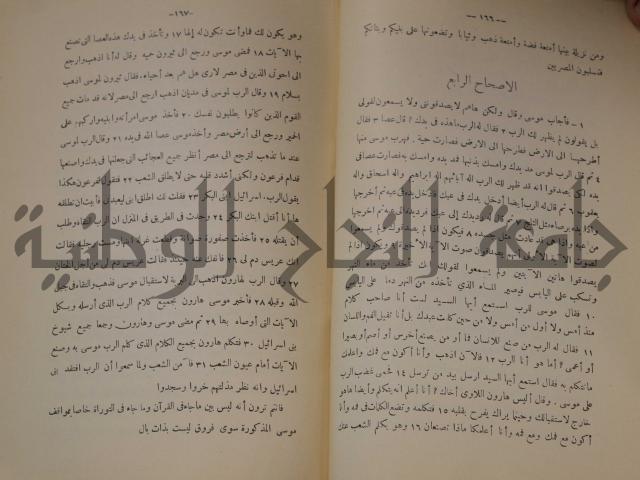 — ١٦٦ —
ومن نزيلة بيتها أمتعة فضة وأمتعة ذهب وثيابا وتضعونها على بنيكم وبناتكم
فتسلبون المصريين
الاصحاح الرابع
١ — فأجاب موسى وقال ولكن هاهم لا يصدقوني ولا يسمعون لقولى
بل يقولون لم يظهر لك الرب ٢ فقال له الرب ماهذه فى يدك ؟ قال عصا ٣ فقال
أطرحها الى الارض فطرحها الى الارض فصارت حية . فهرب موسى منها
٤ ثم قال الرب لموسى مد يدك وامسك بذنبها فمد يده وامسك به فصارت عصا فى
يده ٥ لكى يصدقوا انه قد ظهر لك الرب اله آبائهم اله ابراهيم واله اسحاق واله
يعقوب ٦ ثم قال له الرب أيضا أدخل يدك فى عبك فأدخل يده فى عبه ثم أخرجها
واذا يده برصاء مثل الثلج ٧ ثم قال له رد يدك إلى عبك فرد يده إلى عبه ثم أخرجها
من عبه واذا هى قد عادت مثل جسده ٨ فيكون اذا لم يصدقوك ولم يسمعوا
لصوت الآية الاولى أنهم يصدقون صوت الآية الاخيرة ٩ ويكون اذا لم
يصدقوا هاتين الآيتين ولم يسمعوا لقولك أنك تأخذ من ماء النهر
وتسكب على اليابس فيصير الماء الذى تأخذه من النهر دما على اليابس
١٠ فقال موسى للرب استمع أيها السيد لست أنا صاحب كلام
منذ أمس ولا أول من أمس ولا من حين كلمت عبدك بل أنا ثقيل الفم واللسان
١١ فقال له الرب من صنع للانسان فما أو من يصنع أخرس أو أصم أو بصيرا
أو أعمى ؟ أما هو أنا الرب ١٢ فالآن اذهب وأنا أكون مع فمك وأعلمك
ماتتكلم به فقال استمع أيها السيد ارسل بيد من ترسل ١٤ فحمى غضب الرب
على موسى . وقال أليس هارون اللاوى أخاك ؟ أنا أعلم انه يتكلم وأيضا هاهو
خارج لاستقبالك وحينما يراك يفرح بقلبه ١٥ فتكلمه وتضع الكلمات فى فمه وأنا
أكون مع فمك ومع فمه وأنا أعلمكما ماذا تصنعان ١٦ وهو يكلم الشعب عنك
— ١٦٧ —
وهو يكون لك فما وأنت تكون له إلها ١٧ وتأخذ فى يدك هذه العصا التى تصنع
بها الآيات ١٨ فمضى موسى ورجع الى يثرون حميه وقال له أنا اذهب وارجع
الى اخوتى الذين فى مصر لارى هل هم بعد أحياء . فقال يثرون لموسى اذهب
بسلام ١٩ وقال الرب لموسى فى مديان اذهب ارجع الى مصر لانه قد مات جميع
القوم الذين كانوا يطلبون نفسك ٢٠ فأخذ موسى امرأته وبنيه واركبهم على
الحمير ورجع الى أرض مصر وأخذ موسى عصا الله فى يده ٢١ وقال الرب لموسى
عند ما تذهب لترجع الى مصر أنظر جميع العجائب التى جعلتها فى يدك واصنعها
قدام فرعون ولكنى أشدد قلبه حتى لا يطلق الشعب ٢٢ فتقول لفرعون هكذا
يقول الرب . اسرائيل ابنى البكر ٢٣ فقلت لك اطلق ابنى ليعبدنى فأبيت أن تطلقه
ها أنا أقتل ابنك البكر ٢٤ وحدث فى الطريق فى المنزل ان الرب التقاه وطلب
أن يقتله ٢٥ فأخذت صفورة صوانة وقطعت غرلة ابنها ومست رجليه فقالت
انك عريس دم لى ٢٦ فانفك عنه حينئذ قالت عريس دم لى من أجل الختان
٢٧ وقال الرب لهارون اذهب الى البرية لاستقبال موسى فذهب والتقاه فى جبل
الله وقبله ٢٨ فأخبر موسى هارون بجميع كلام الرب الذى أرسله وبكل
الآيات التى أوصاه بها ٢٩ ثم مضى موسى وهارون وجمعا جميع شيوخ
بنى اسرائيل ٣٠ فتكلم هارون بجميع الكلام الذى كلم الرب موسى به وصنع
الآيات أمام عيون الشعب ٣١ فآمن الشعب ولما سمعوا أن الرب افتقد بنى
اسرائيل وانه نظر مذلتهم خروا وسجدوا
فانتم ترون أنه ليس بين ماجاء فى القرآن وما جاء فى التوراة خاصا بمواقف
موسى المذكورة سوى فروق ليست بذات بال
جامعة النجاح الوطنية